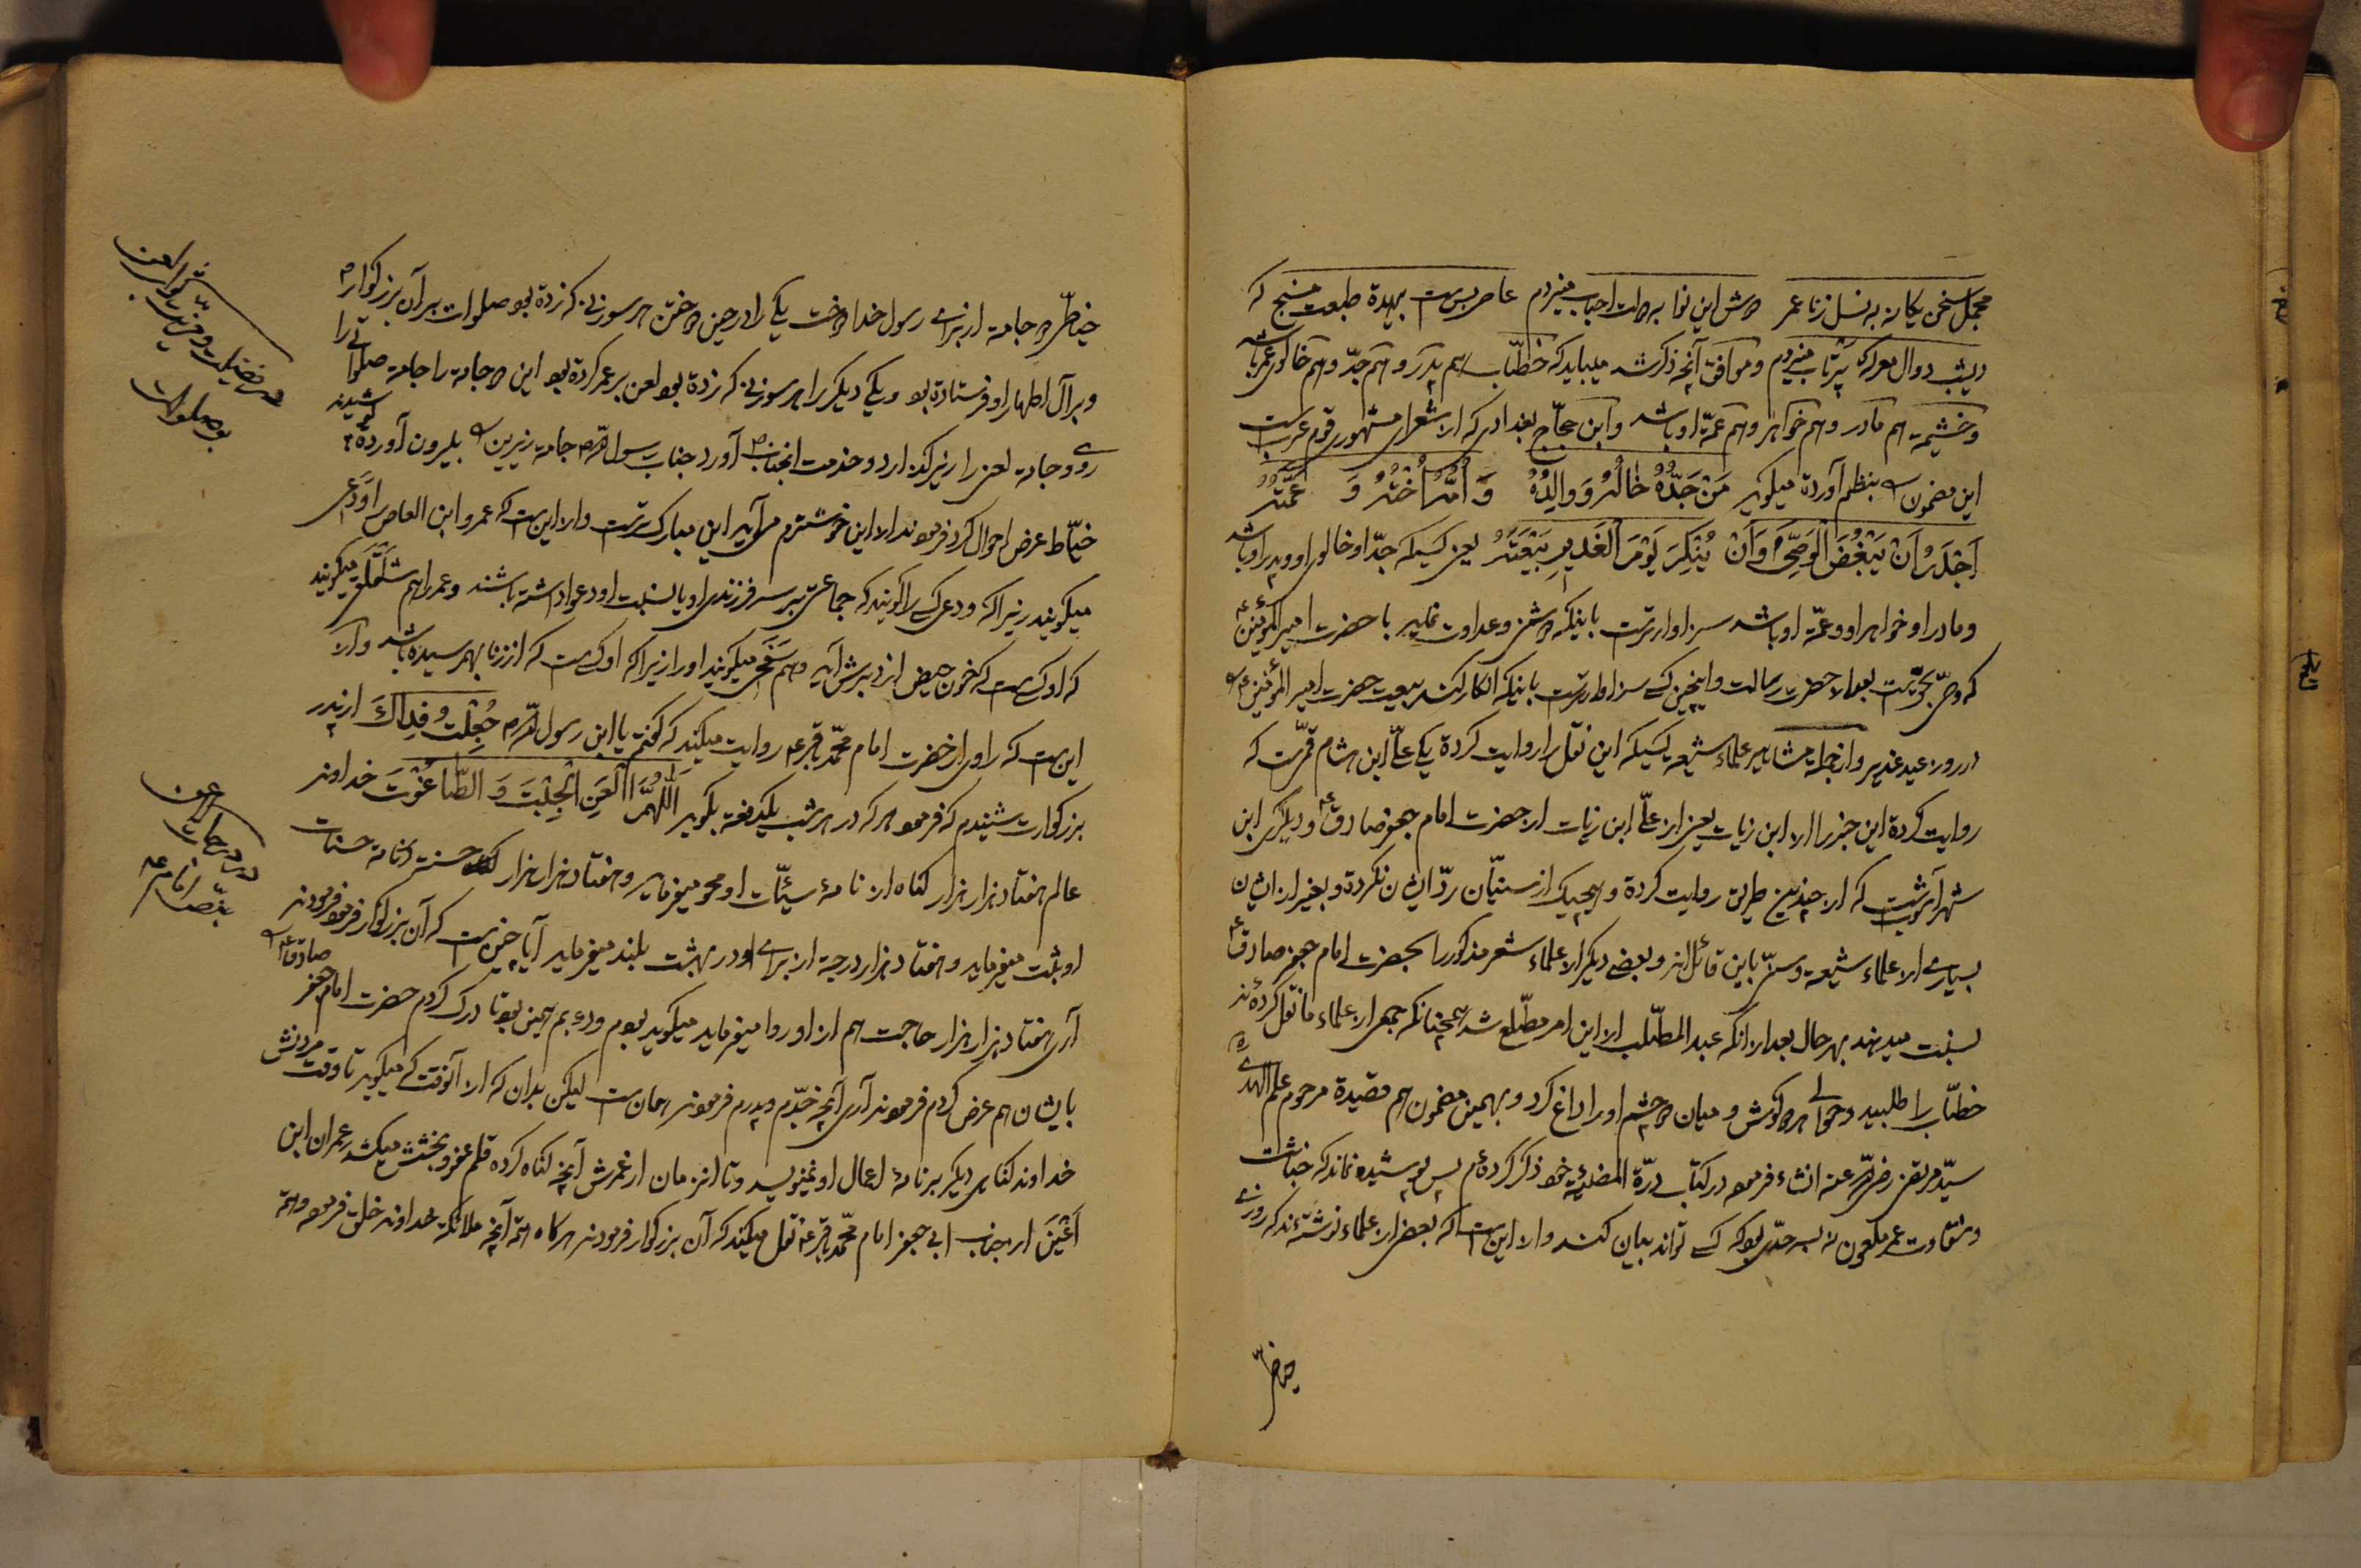 مجمل سخن یکانه به نسل زنا عمر
دیشب دوال معرکه پرتاب میزدم و موافق آنچه ذکر شد میباید که خطّاب هم پدر و هم جدّ و هم خالوی عمر باشد
و خثیمه هم مادر و هم خواهر و هم عمّه او باشد و ابن حجّاج بغدادی که از شعرای مشهور قوم عربست
این مضمون را بنظم آورده میگوید مَنْ جَدُّهُ خالُهُ وَ والِدُهُ وَ اُمُّهُ اُخْتُهُ وَ عَمَّتُهُ
اَجْدَرُ اَنْ یَبْغُضَ الْوَصِیَّ وَ اَنْ یُنْکِرَ یَوْمَ الْغَدیرِ بَیْعَتَهُ یعنی کسیکه جدّ او خالوی او و پدر او باشد
و مادر او خواهر او و عمّه او باشد سزاوارترست باینکه دشمنی و عداوت نماید با حضرت امیر المؤمنین ع
که وصیّ بحقست بعد از حضرت رسالت و اینچنین کسی سزاوارترست باینکه انکار کند بیعت حضرت امیر المؤمنین ع را
در روز عید غدیر و از جمله مشاهیر علماء شیعه کسیکه این نقل را روایت کرده یکی علیّ ابن هشام قمّیست که
روایت کرده این خبر را از ابن زیات یعنی از علیّ ابن زیات از حضرت امام جعفر صادق ع و دیگری ابن
شهر آشوبست که از چندین طریق روایت کرده و هیچیک از سنّیان ردّ ایشان نکرده و بغیر از ایشان
بسیاری از علماء شیعه و سنّی باین قائل‌اند و بعضی دیگر از علماء شعر مذکور را بحضرت امام جعفر صادق ع
نسبت میدهند بهر حال بعد از انکه عبد المطّلب از این امر مطّلع شد همچنانکه جمعی از علماء ما نقل کرده‌ند
خطّاب را طلبید و حوالی هر دو گوش و میان دو چشم او را داغ کرد و بهمین مضمون هم قصیده مرحوم علم الهدی
سیّد مرتضی رضی الله عنه انشاء فرموده در کتاب درّة المضیئه خود ذکر کرده‌ام پس پوشیده نماند که خباثت
و شقاوت عمر ملعون نه بحدّی بود که کسی تواند بیان کند و از این است که بعضی از علماء نوشته‌ند که روزی
خیّاطی
خیّاطی دو جامه از برای رسول خدا دوخت یکی را در حین دوختن هر سوزنی که زده بود صلوات بر آن بزرگوار ص
و بر آل اطهار او فرستاده بود و یکی دیگر را هر سوزنی که زده بود لعن بر عمر کرده بود این دو جامه را جامه صلواتی را
روی و جامه لعنی را زیر گذارد و خدمت انجناب ص آورد جناب رسول الله ص جامه زیرین را بیرون آورده پوشیدند
خیّاط عرض احوال کرد فرمودند از این خوشترم می‌آید این مبارک‌ترست و از این است که عمرو ابن العاص را دَعی
میگویند زیرا که دعی کسی را گویند که جماعتی بر سر فرزندی او یا نسبت او دعوا داشته باشند و عمر را هم سَلَقْلَقی میگویند
که او کسی است که خون حیض از دبرش آید و هم سَفَحی میگویند او را زیرا که او کسی است که از زنا بهم رسیده باشد و از
این است که راوی از حضرت امام محمّد باقر ع روایت میکند که گفتم یا ابن رسول الله ص جُعِلْتُ فِداکَ از پدر
بزرگوارت شنیدم که فرمود هر که در هر شب یکدفعه بگوید اَللّهُمَّ الْعَنِ الْجِبْتَ وَ الطّاغُوتَ خداوند
عالم هفتاد هزار هزار گناه از نامهٔ سیّئات او محو میفرماید و هفتاد هزار هزار حسنه در نامه حسنات
او ثبت میفرماید و هفتاد هزار درجه از برای او در بهشت بلند میفرماید آیا چنین است که آن بزرگوار فرمود فرمودند
آری هفتاد هزار هزار حاجت هم از او روا میفرماید میگوید بودم و دعایم همین بود تا درک کردم حضرت امام جعفر صادق ع را
بایشان هم عرض کردم فرمودند آری آنچه جدّم و پدرم فرمودند همان است لیکن بدان که از آنوقت که میگوید تا وقت مردنش
خداوند گناهی دیگر بر نامهٔ اعمال او نمینویسد و تا انزمان از عمرش آنچه گناه کرده قلم عفو و بخشش میکشد عمران ابن
اَعْیَن از جناب ابی جعفر امام محمّد باقر ع نقل میکند که آن بزرگوار فرمودند هرگاه همه آنچه ملائکه خداوند خلق فرموده و همه
در فضیلت و مزیّت ثواب لعن
بر صلوات
در درجات لعن
بنصّ امام ع